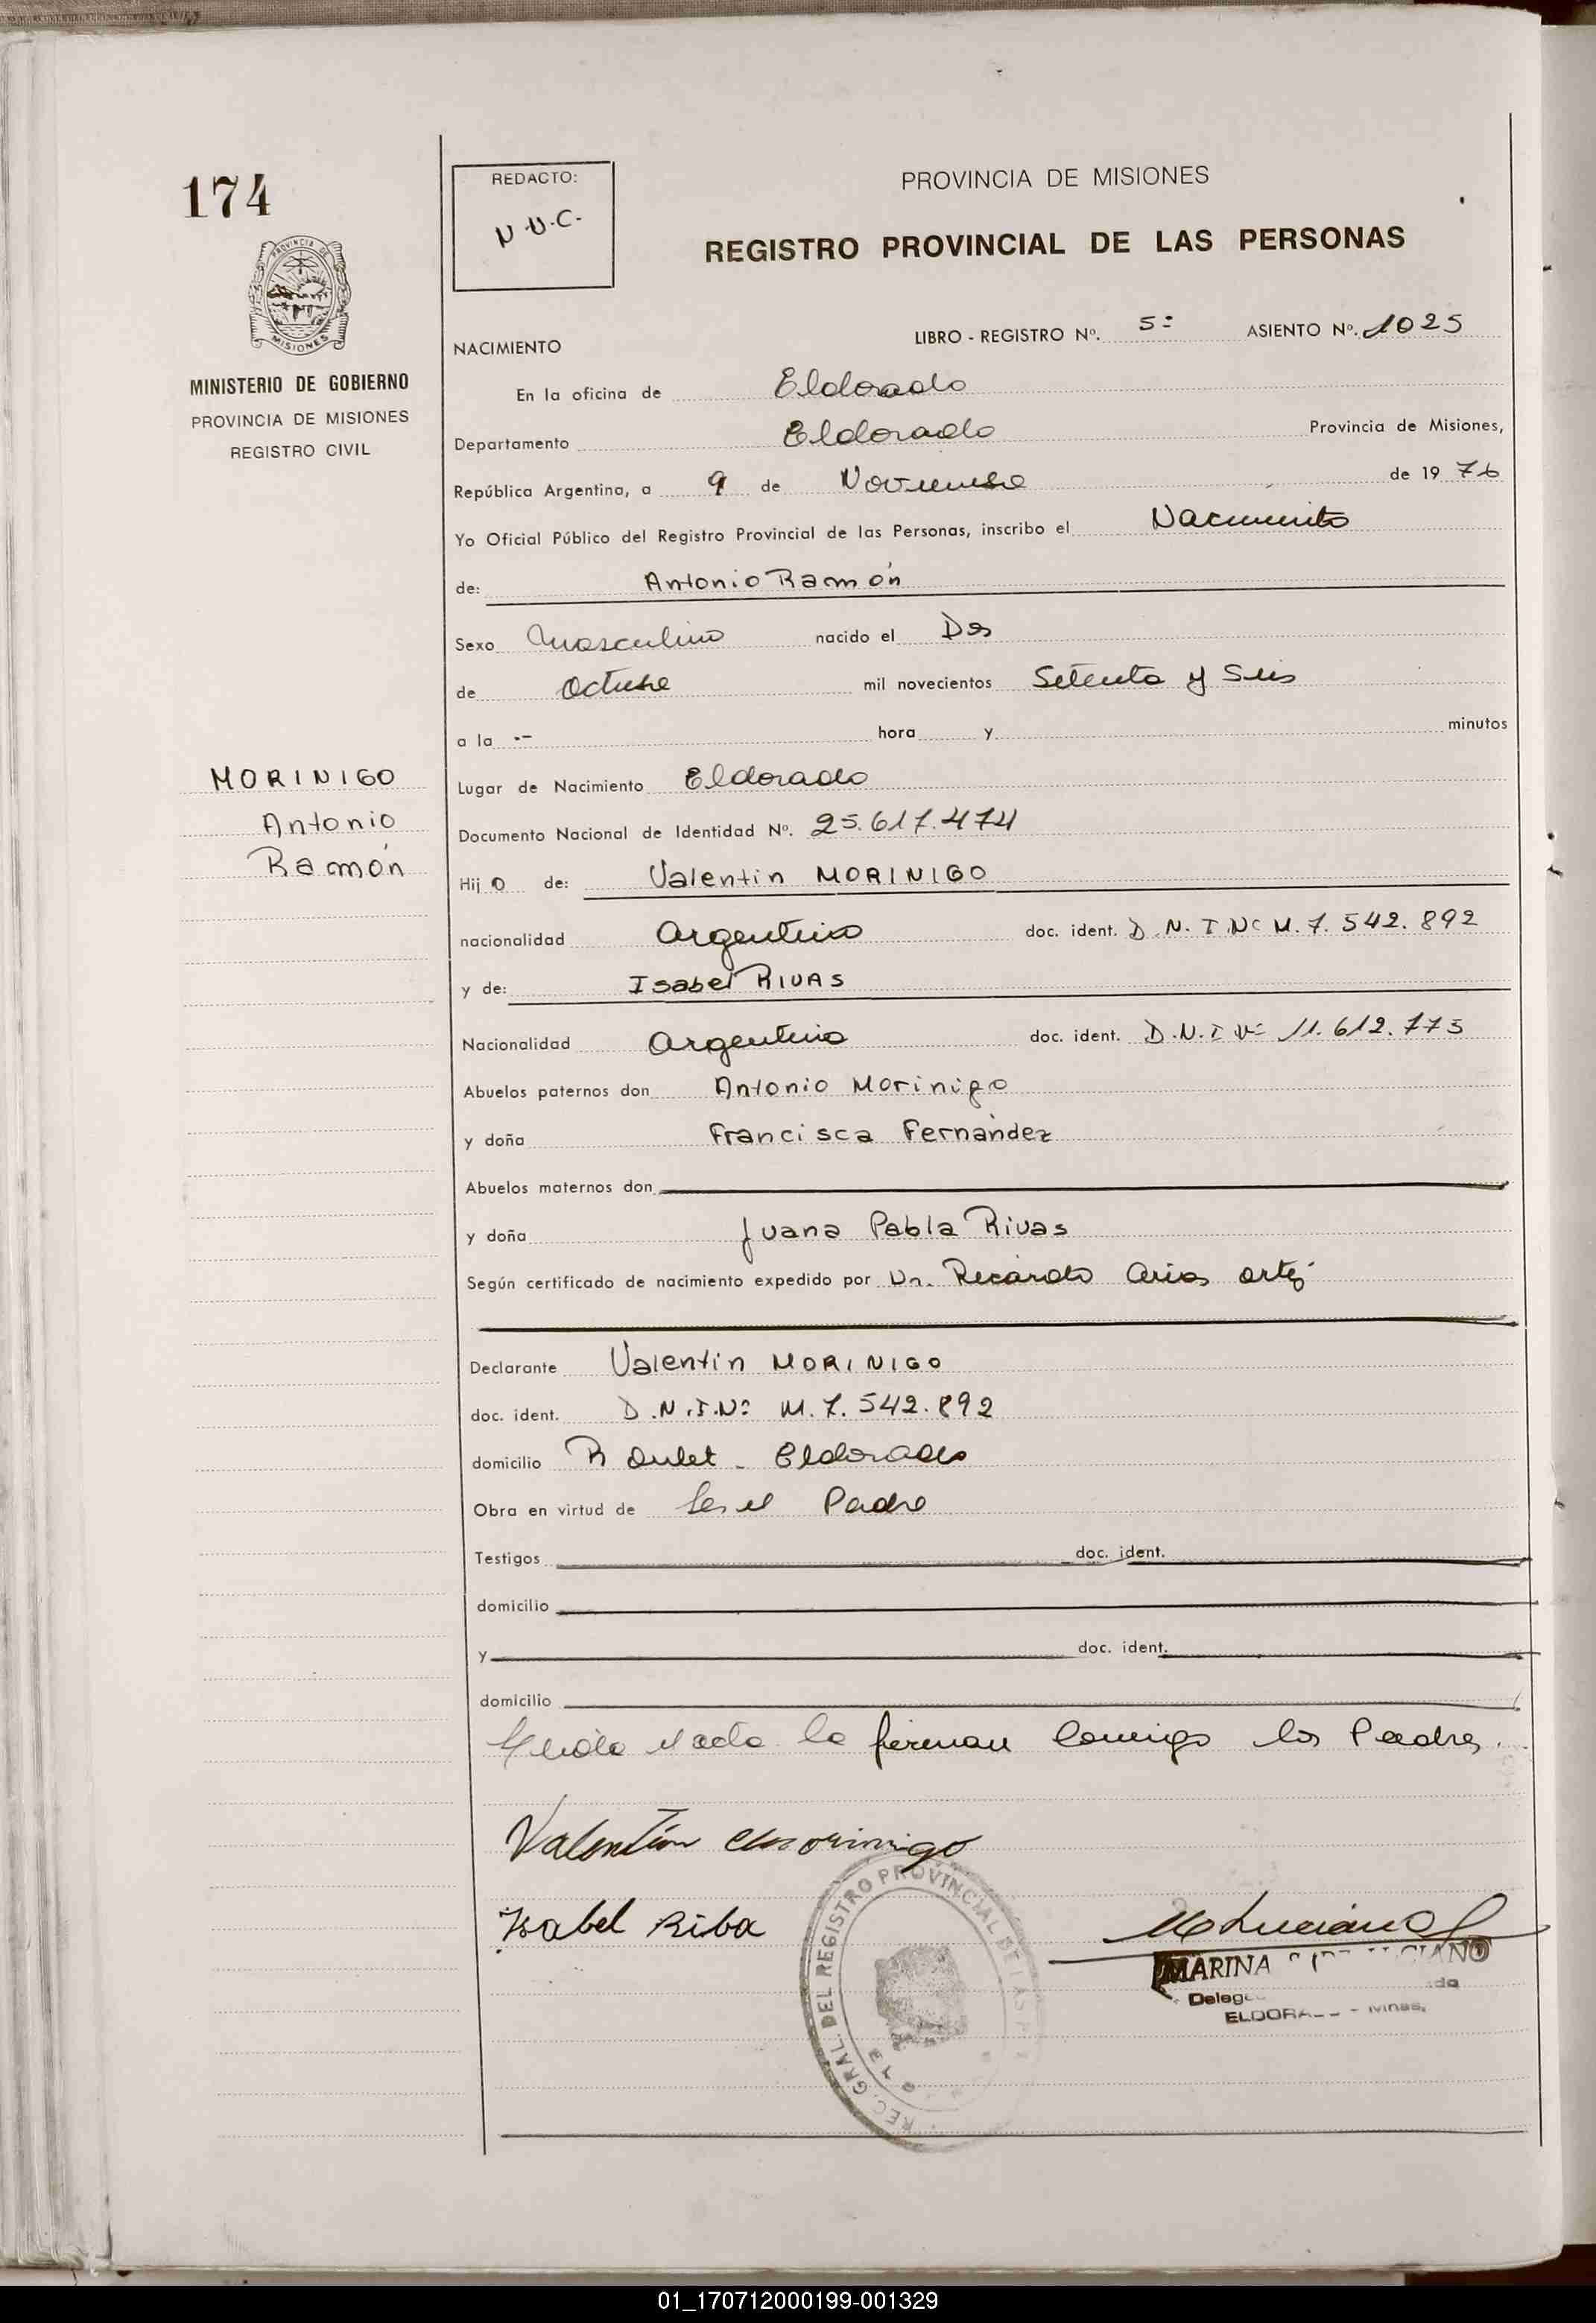 174
REDACTO:
N.U.C.
PROVINCIA DE MISIONES
REGISTRO PROVINCIAL DE LAS PERSONAS
PROVINCIA DE
MISIONES
MINISTERIO DE GOBIERNO
PROVINCIA DE MISIONES
REGISTRO CIVIL
LIBRO - REGISTRO Nº. 5º ASIENTO Nº. 1025
NACIMIENTO
En la oficina de Eldorado
Departamento Eldorado Provincia de Misiones,
República Argentina, a 9 de Noviembre de 1976
Yo Oficial Público del Registro Provincial de las Personas, inscribo el Nacimiento
de: Antonio Ramón
Sexo Masculino nacido el Dos
de Octubre mil novecientos Setenta y Seis
a la .- hora y minutos
MORINIGO
Antonio
Ramón
Lugar de Nacimiento Eldorado
Documento Nacional de Identidad Nº. 25.617.474
Hijo de: Valentin MORINIGO
nacionalidad Argentino doc. ident. D.N.I.Nº M.7.542.892
y de: Isabel RIVAS
Nacionalidad Argentina doc. ident. D.N.I Nº 11.612.773
Abuelos paternos don Antonio Morinigo
y doña Francisca Fernández
Abuelos maternos don
y doña Juana Pabla Rivas
Según certificado de nacimiento expedido por Dr. Ricardo Arias
Declarante Valentin MORINIGO
doc. ident. D.N.I.Nº M.7.542.892
domicilio R Oulet - Eldorado
Obra en virtud de Ser el Padre
Testigos doc. ident.
domicilio
y doc. ident.
domicilio
Leida el acta la firman Conmigo los Padres.
Valentín Morinigo
Isabel Riba
REC. GRAL. DEL REGISTRO PROVINCIAL DE LAS P
MARINA
Deleg
ELDORA
01_170712000199-001329